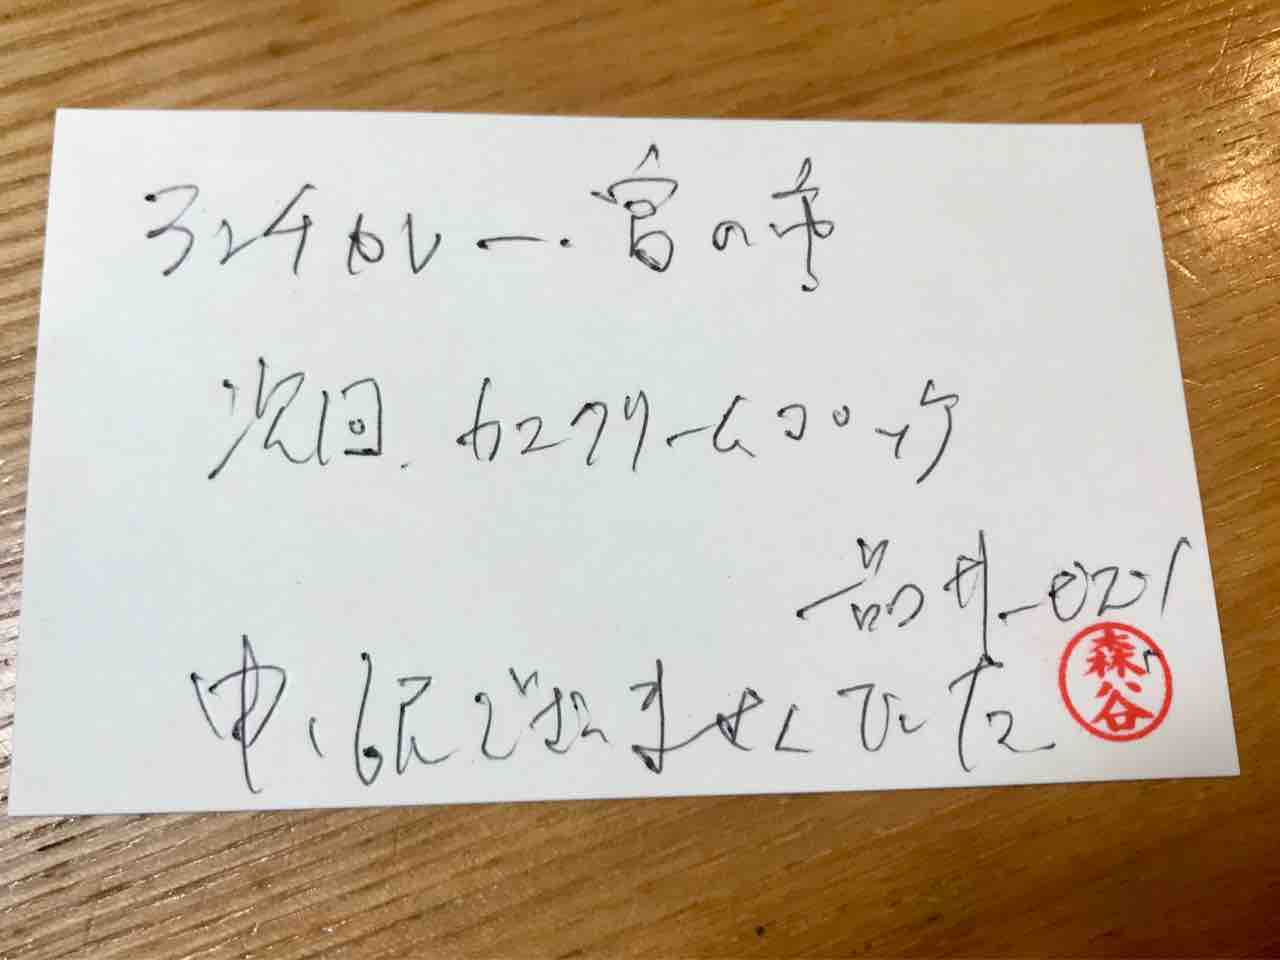 ランチカレー.宮の市
次回.カニクリームコロッケ
一品サービス
申し訳ございませんでした
森谷